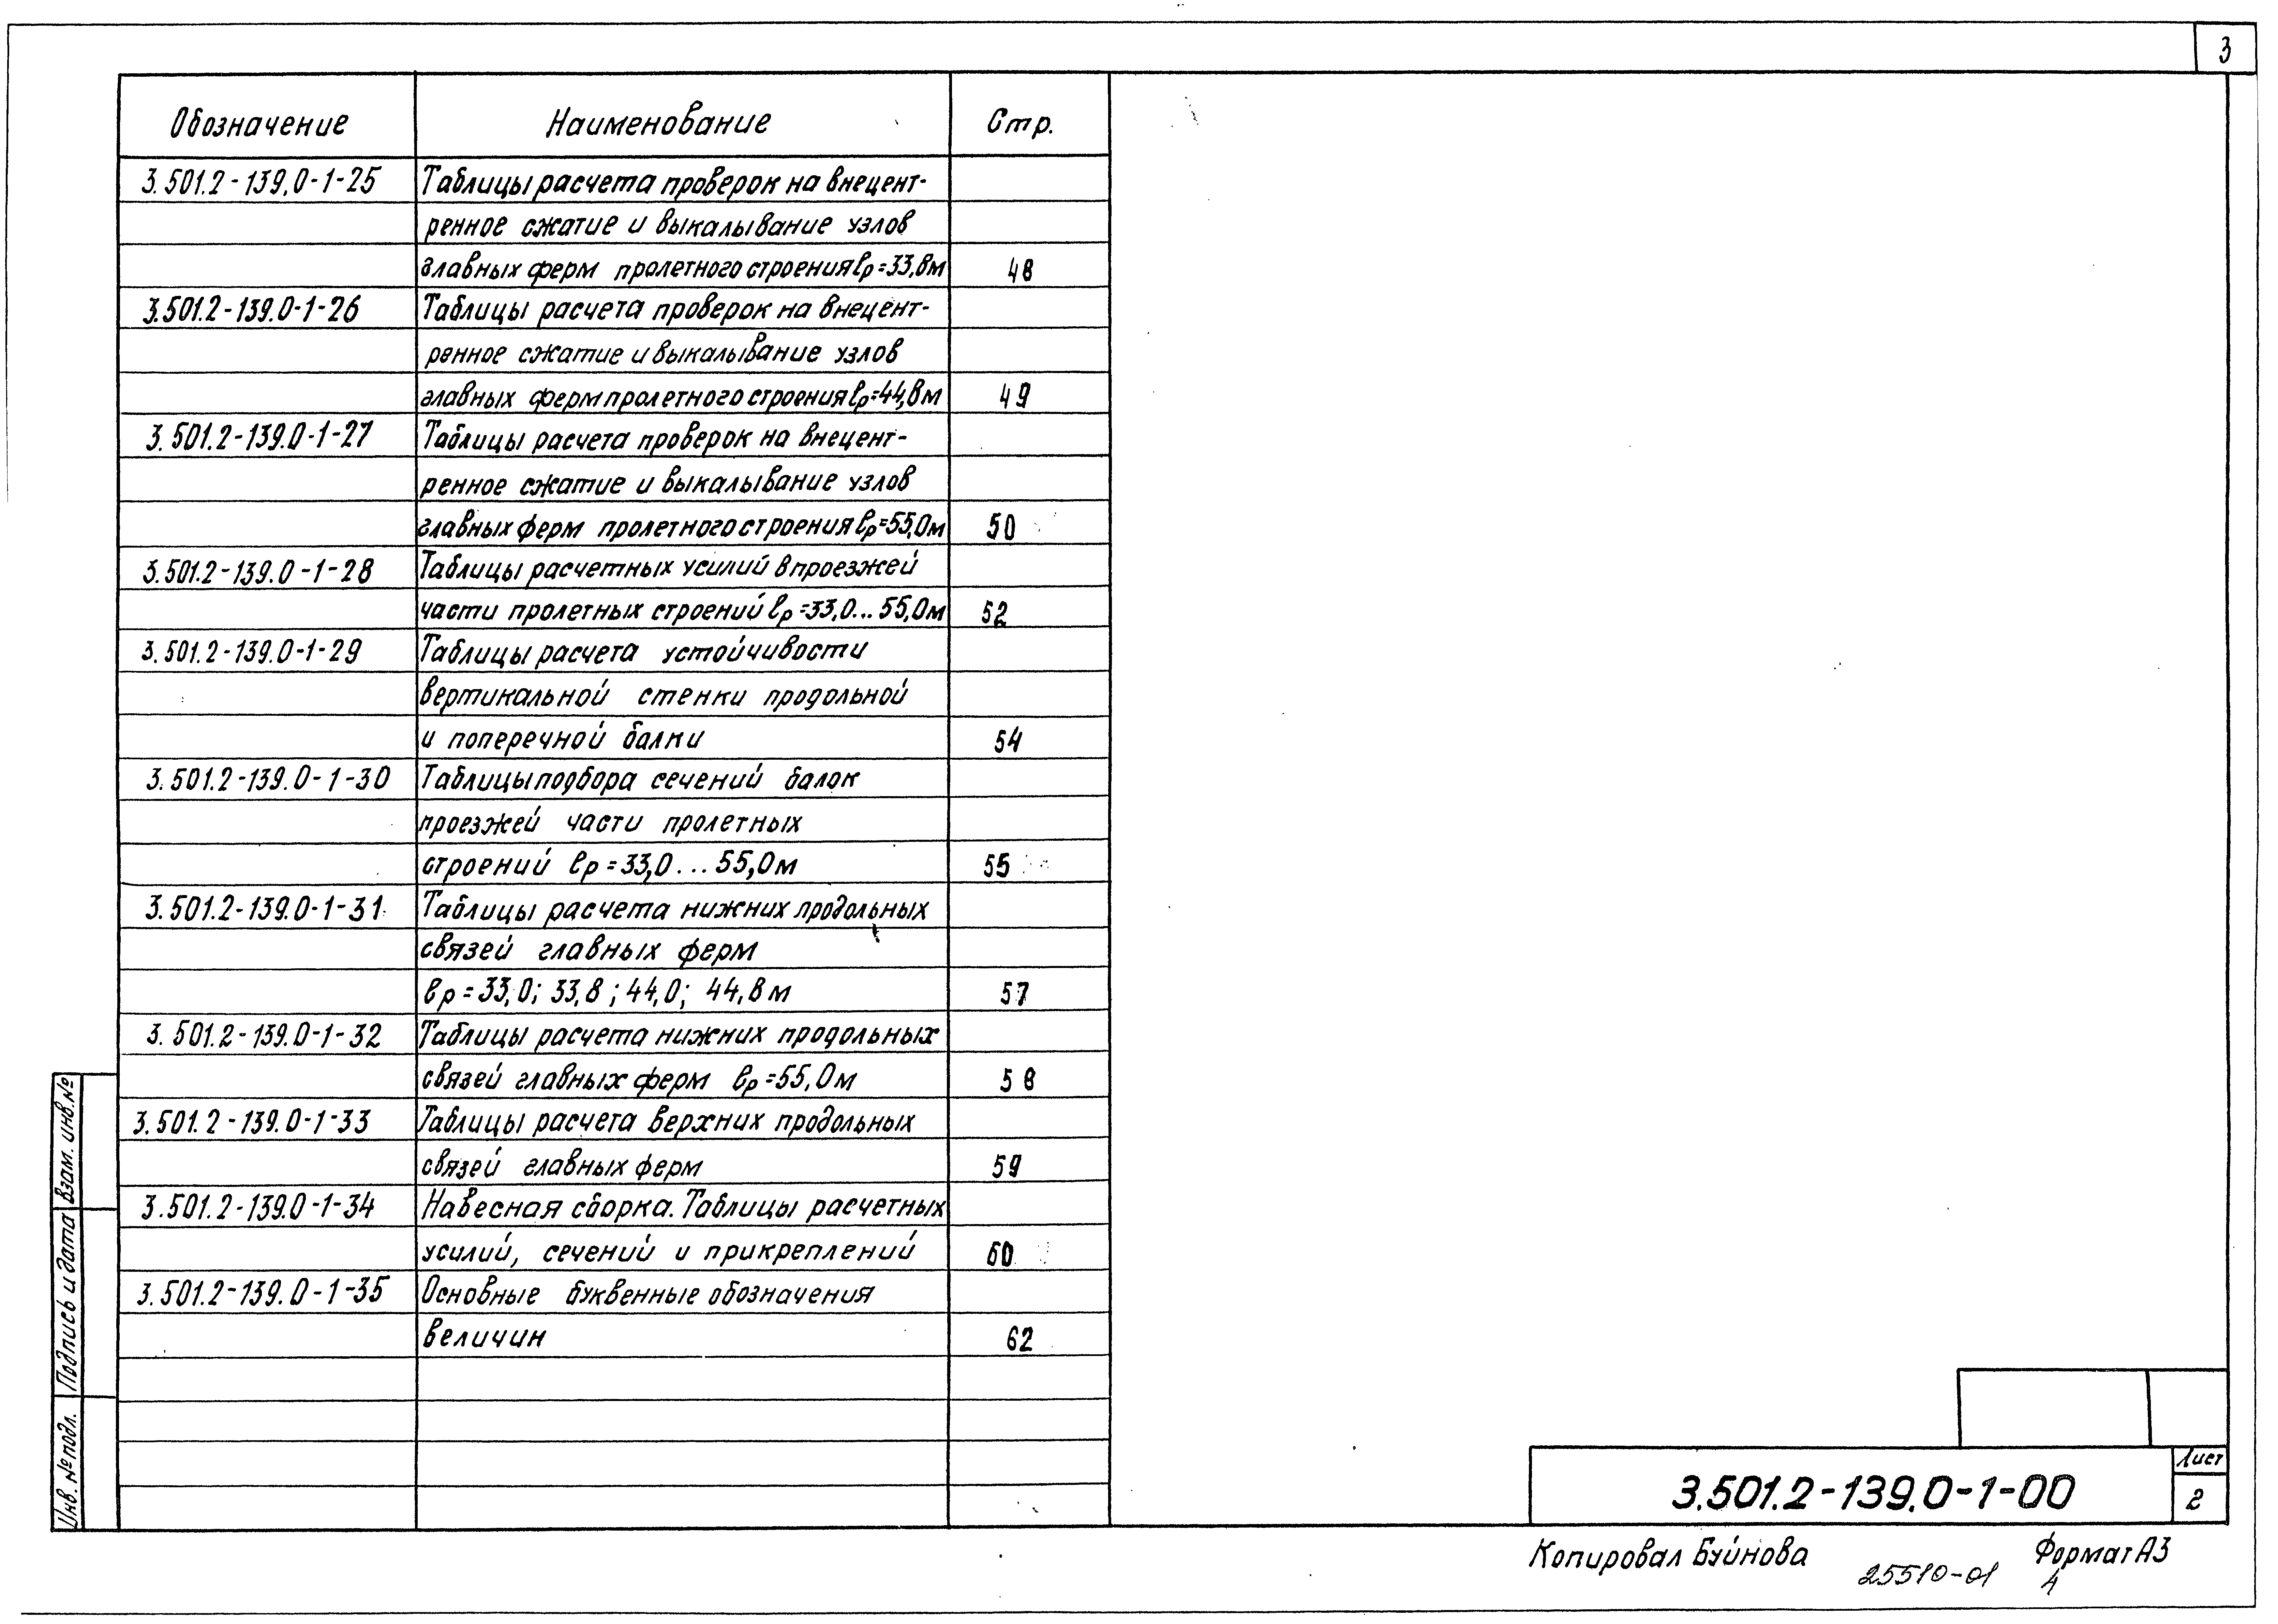 3
Обозначение Наименование Стр.
3.501.2-139.0-1-25 Таблицы расчета проверок на внецент-
ренное сжатие и выкалывание узлов
главных ферм пролетного строения lр=33,8м 48
3.501.2-139.0-1-26 Таблицы расчета проверок на внецент-
ренное сжатие и выкалывание узлов
главных ферм пролетного строения lр=44,8м 49
3.501.2-139.0-1-27 Таблицы расчета проверок на внецент-
ренное сжатие и выкалывание узлов
главных ферм пролетного строения lр=55,0м 50
3.501.2-139.0-1-28 Таблицы расчетных усилий в проезжей
части пролетных строений lр=33,0...55,0м 52
3.501.2-139.0-1-29 Таблицы расчета устойчивости
вертикальной стенки продольной
и поперечной балки 54
3.501.2-139.0-1-30 Таблицы подбора сечений балок
проезжей части пролетных
строений lр=33,0...55,0м 55
3.501.2-139.0-1-31 Таблицы расчета нижних продольных
связей главных ферм
lр=33,0; 33,8; 44,0; 44,8м 57
3.501.2-139.0-1-32 Таблицы расчета нижних продольных
связей главных ферм lр=55,0м 58
3.501.2-139.0-1-33 Таблицы расчета верхних продольных
связей главных ферм 59
3.501.2-139.0-1-34 Навесная сборка. Таблицы расчетных
усилий, сечений и прикреплений 60
3.501.2-139.0-1-35 Основные буквенные обозначения
величин 62
Взам. инв.№
Подпись и дата
Инв. № подл.
3.501.2-139.0-1-00
Лист
2
Копировал Буйнова Формат А3
25510-01 4